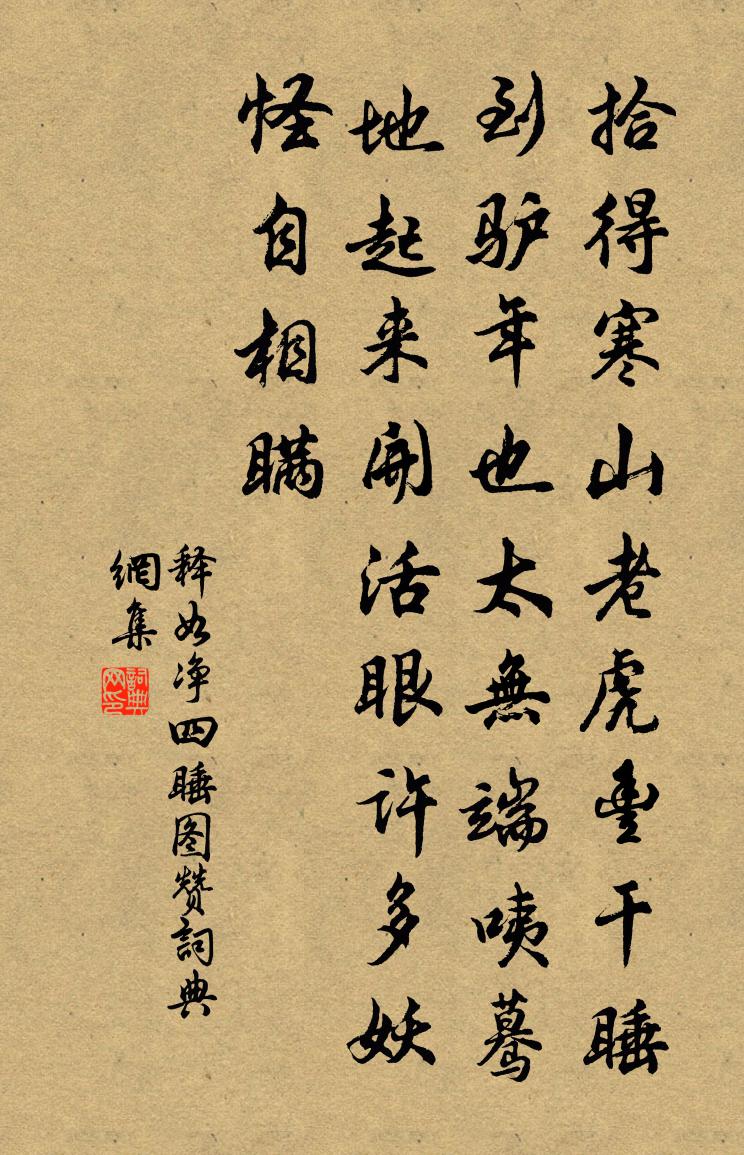 拾得寒山老虎豊干睡
到驴年也太無端咦驀
地起来開活眼许多妖
怪自相瞒
释如净四睡图赞詞典
網集
詞典
网印